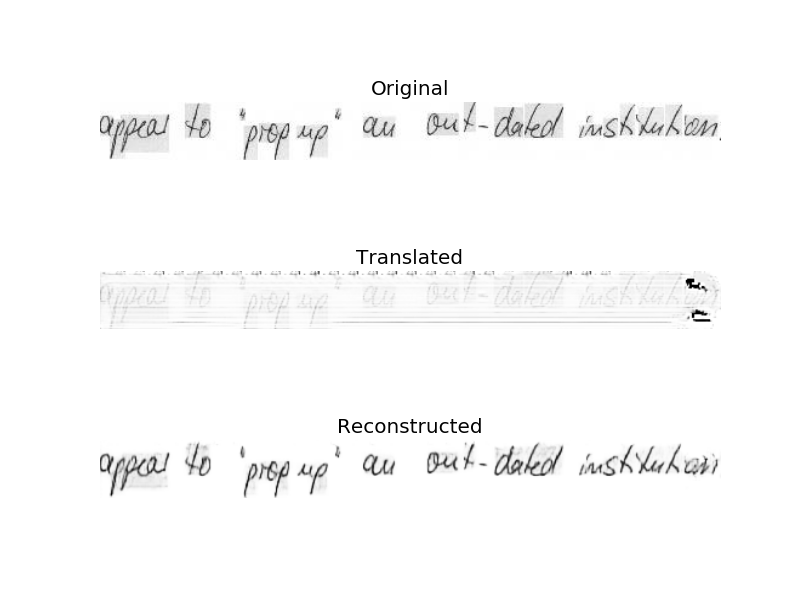 Original
appear to "prop up" an out-dated institution.
Translated
appear to prop up an out-dated institution
Reconstructed
appear to "prop up" an out-dated institution